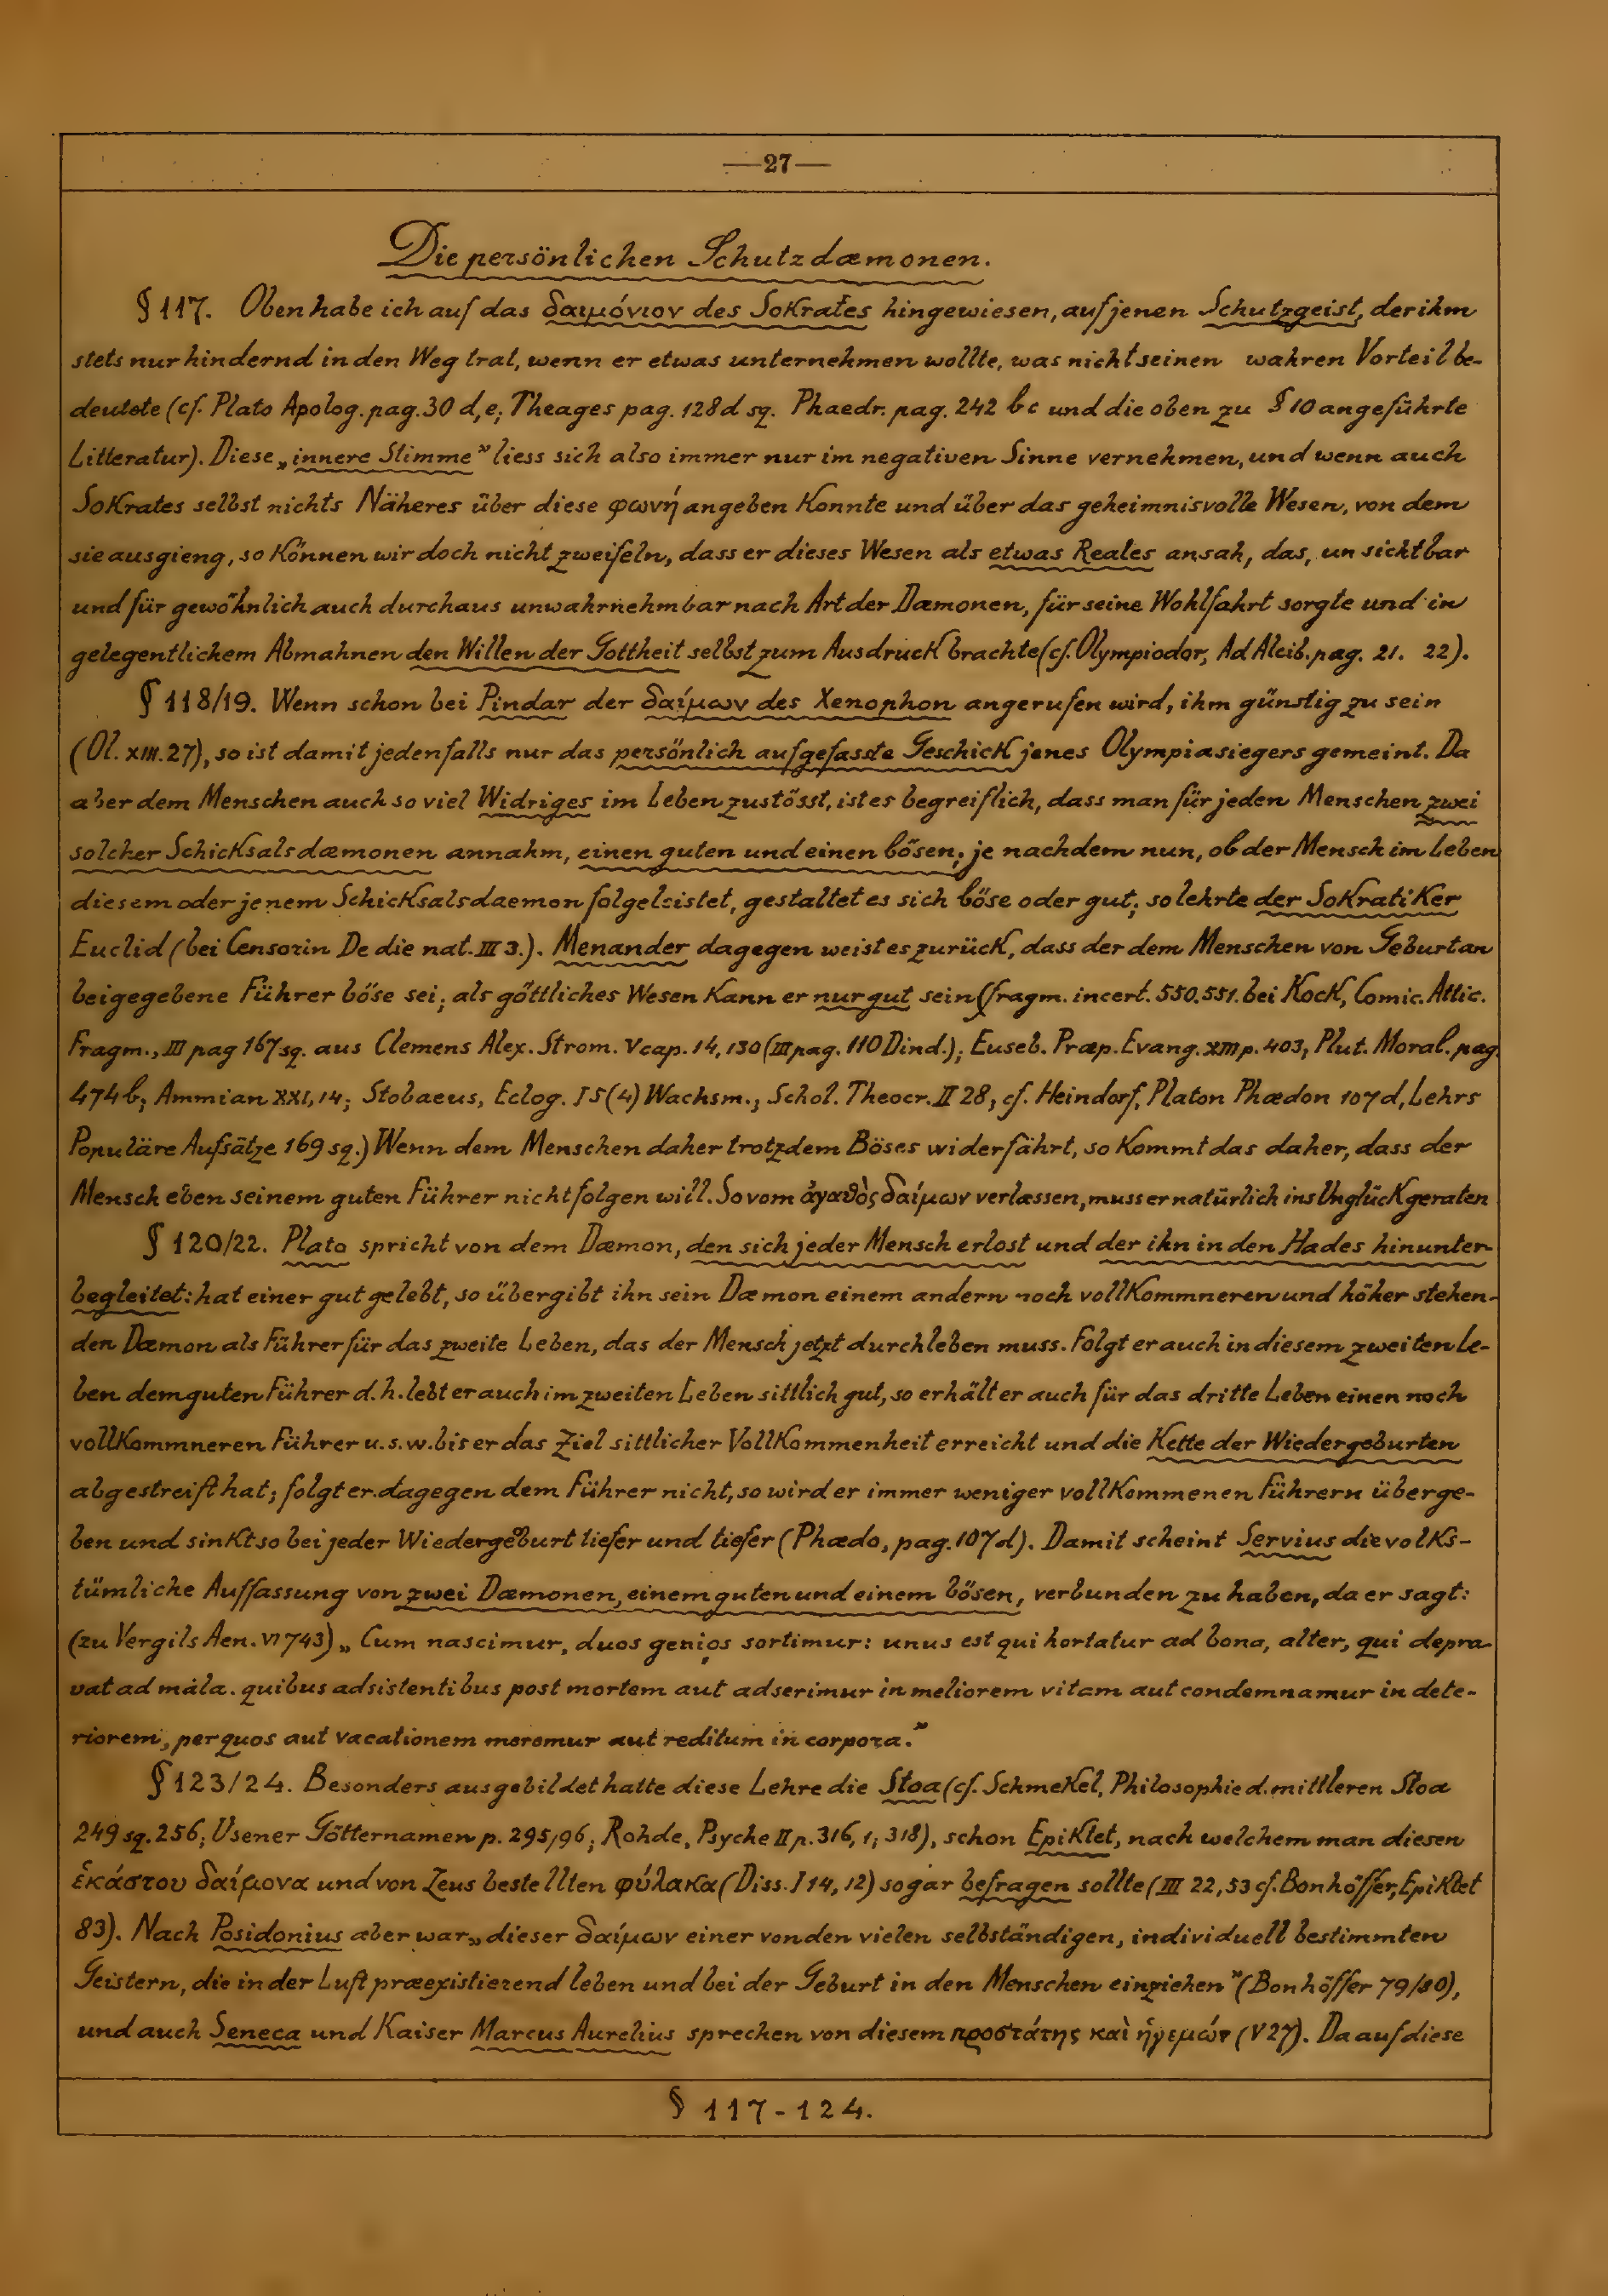 —27—
Die persönlichen Schutzdæmonen.
§ 117. Oben habe ich auf das δαιμόνιον des Sokrates hingewiesen, auf jenen Schutzgeist, der ihm
stets nur hindernd in den Weg trat, wenn er etwas unternehmen wollte, was nicht seinen wahren Vorteil be-
deutete (cf. Plato Apolog. pag. 30 d, e; Theages pag. 128d sq. Phaedr. pag. 242 bc und die oben zu § 10 angeführte
Litteratur). Diese „innere Stimme" liess sich also immer nur im negativen Sinne vernehmen, und wenn auch
Sokrates selbst nichts Näheres über diese φωνή angeben konnte und über das geheimnisvolle Wesen, von dem
sie ausgieng, so können wir doch nicht zweifeln, dass er dieses Wesen als etwas Reales ansah, das, unsichtbar
und für gewöhnlich auch durchaus unwahrnehmbar nach Art der Dæmonen, für seine Wohlfahrt sorgte und in
gelegentlichem Abmahnen den Willen der Gottheit selbst zum Ausdruck brachte (cf. Olympiodor, Ad Alcib. pag. 21. 22).
§ 118/19. Wenn schon bei Pindar der δαίμων des Xenophon angerufen wird, ihm günstig zu sein
(Ol. XIII. 27), so ist damit jedenfalls nur das persönlich aufgefasste Geschick jenes Olympiasiegers gemeint. Da
aber dem Menschen auch so viel Widriges im Leben zustösst, ist es begreiflich, dass man für jeden Menschen zwei
solcher Schicksalsdæmonen annahm, einen guten und einen bösen; je nachdem nun, ob der Mensch im Leben
diesem oder jenem Schicksalsdaemon folge leistet, gestaltet es sich böse oder gut; so lehrte der Sokratiker
Euclid (bei Censorin De die nat. III 3.). Menander dagegen weist es zurück, dass der dem Menschen von Geburt an
beigegebene Führer böse sei; als göttliches Wesen kann er nur gut sein (fragm. incert. 550. 551. bei Kock, Comic. Attic.
Fragm., III pag 167 sq. aus Clemens Alex. Strom. V cap. 14, 130 (III pag. 110 Dind.); Euseb. Præp. Evang. XIII p. 403, Plut. Moral. pag.
474 b; Ammian XXI, 14; Stobaeus, Eclog. I 5 (4) Wachsm.; Schol. Theocr. II 28, cf. Heindorf, Platon Phædon 107 d, Lehrs
Populäre Aufsätze 169 sq.) Wenn dem Menschen daher trotzdem Böses widerfährt, so kommt das daher, dass der
Mensch eben seinem guten Führer nicht folgen will. So vom ἀγαθὸς δαίμων verlassen, muss er natürlich ins Unglück geraten
§ 120/22. Plato spricht von dem Dæmon, den sich jeder Mensch erlost und der ihn in den Hades hinunter-
begleitet: hat einer gut gelebt, so übergibt ihn sein Dæmon einem andern noch vollkommneren und höher stehen-
den Dæmon als Führer für das zweite Leben, das der Mensch jetzt durchleben muss. Folgt er auch in diesem zweiten Le-
ben dem guten Führer d. h. lebt er auch im zweiten Leben sittlich gut, so erhält er auch für das dritte Leben einen noch
vollkommneren Führer u. s. w. bis er das Ziel sittlicher Vollkommenheit erreicht und die Kette der Wiedergeburten
abgestreift hat; folgt er dagegen dem Führer nicht, so wird er immer weniger vollkommenen Führern überge-
ben und sinkt so bei jeder Wiedergeburt tiefer und tiefer (Phædo, pag. 107 d). Damit scheint Servius die volks-
tümliche Auffassung von zwei Dæmonen, einem guten und einem bösen, verbunden zu haben, da er sagt:
(zu Vergils Aen. VI 743) „Cum nascimur, duos genios sortimur: unus est qui hortatur ad bona, alter, qui depra-
vat ad mala. quibus adsistentibus post mortem aut adserimur in meliorem vitam aut condemnamur in dete-
riorem, per quos aut vacationem meremur aut reditum in corpora."
§ 123/24. Besonders ausgebildet hatte diese Lehre die Stoa (cf. Schmekel, Philosophie d. mittleren Stoa
249 sq. 256; Usener Götternamen p. 295/96; Rohde, Psyche II p. 316, 1; 318), schon Epiktet, nach welchem man diesen
ἑκάστου δαίμονα und von Zeus bestellten φύλακα (Diss. I 14, 12) sogar befragen sollte (III 22, 53 cf. Bonhöffer, Epiktet
83). Nach Posidonius aber war „dieser δαίμων einer von den vielen selbständigen, individuell bestimmten
Geistern, die in der Luft præexistierend leben und bei der Geburt in den Menschen einziehen" (Bonhöffer 79/80),
und auch Seneca und Kaiser Marcus Aurelius sprechen von diesem προστάτης καὶ ἡγεμών (V 27). Da auf diese
§ 117-124.